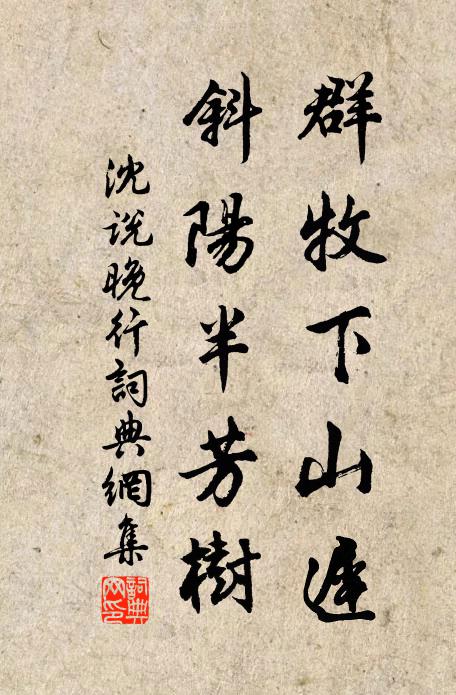 群牧下山遲
斜陽半芳樹
沈說晚行詞典網集
詞典網印